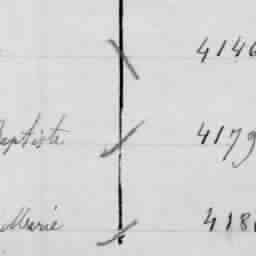 4146
Baptiste 4179
Marie 418